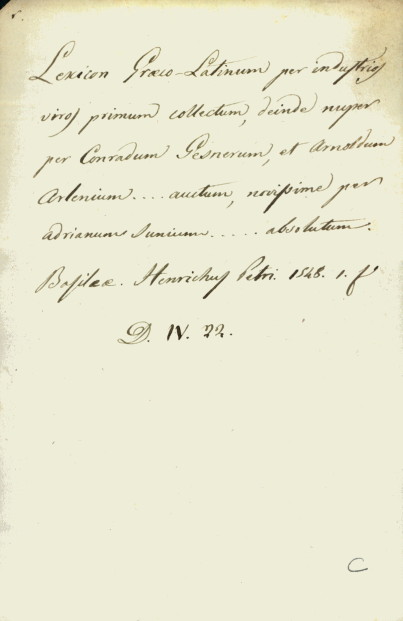 Lexicon Græco-Latinum per industrios
viros primum collectum, deinde nuper
per Conradum Gesnerum, et Arnoldum
Arlenium .... auctum, novissime per
adrianum Junium ..... absolutum.
Basileæ. Henrichus Petri. 1548. 1. f
D. IV. 22.
C